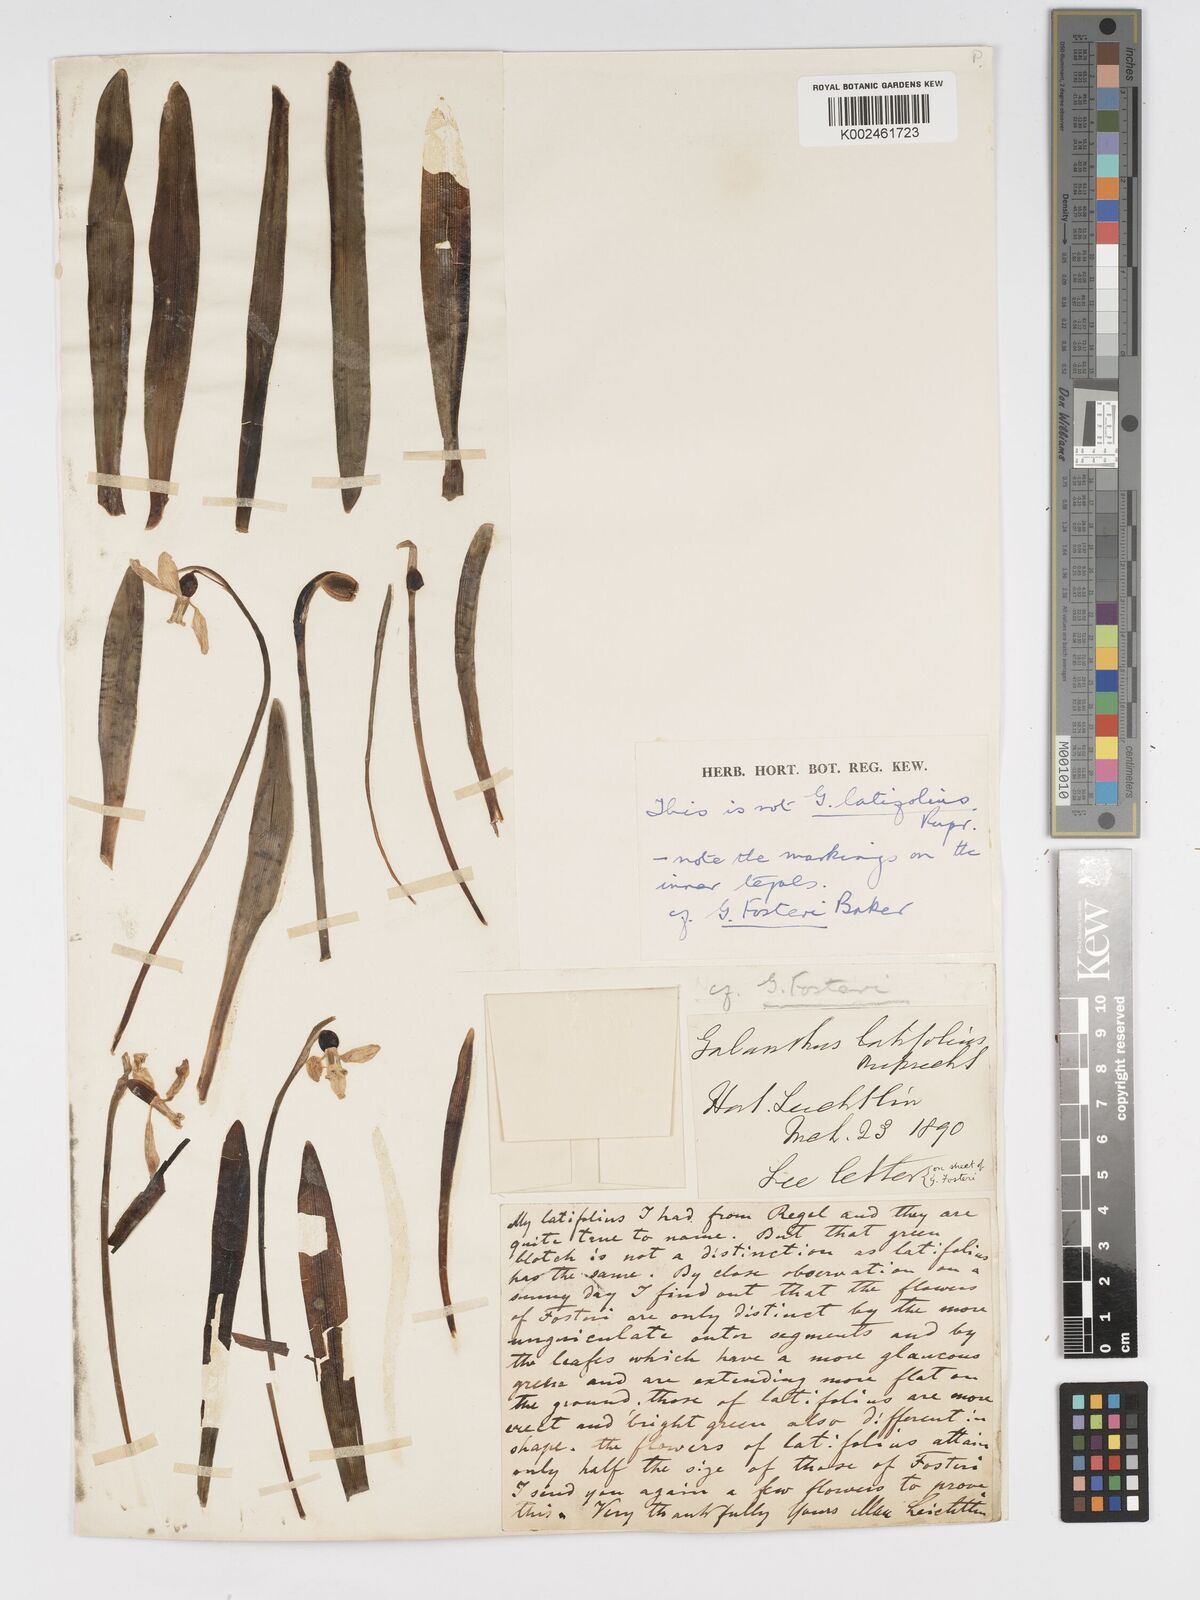 P.
ROYAL BOTANIC GARDENS KEW
K002461723
HERB. HORT. BOT. REG. KEW.
This is not G. latifolius,
Rupr.
— note the markings on the
inner tepals.
cf. G. Fosteri Baker
cf. G. Fosteri
Galanthus latifolius
Ruprecht
Hort. Leichtlin
Mch. 23 1890
See letter on sheet of
G. Fosteri
My latifolius I had from Regel and they are
quite true to name. But that green
blotch is not a distinction as latifolius
has the same. By close observation on a
sunny day I find out that the flowers
of Fosteri are only distinct by the more
unguiculate outer segments and by
the leafes which have a more glaucous
green and are extending more flat on
the ground. those of latifolius are more
erect and bright green also different in
shape. the flowers of latifolius attain
only half the size of those of Fosteri
I send you again a few flowers to prove
this. Very thankfully Yours Max Leichtlin
inches
Don Williams
M001010
centimetres
Kew
copyright reserved
0 1 2 3 4 5 6 7 8 9 10
cm